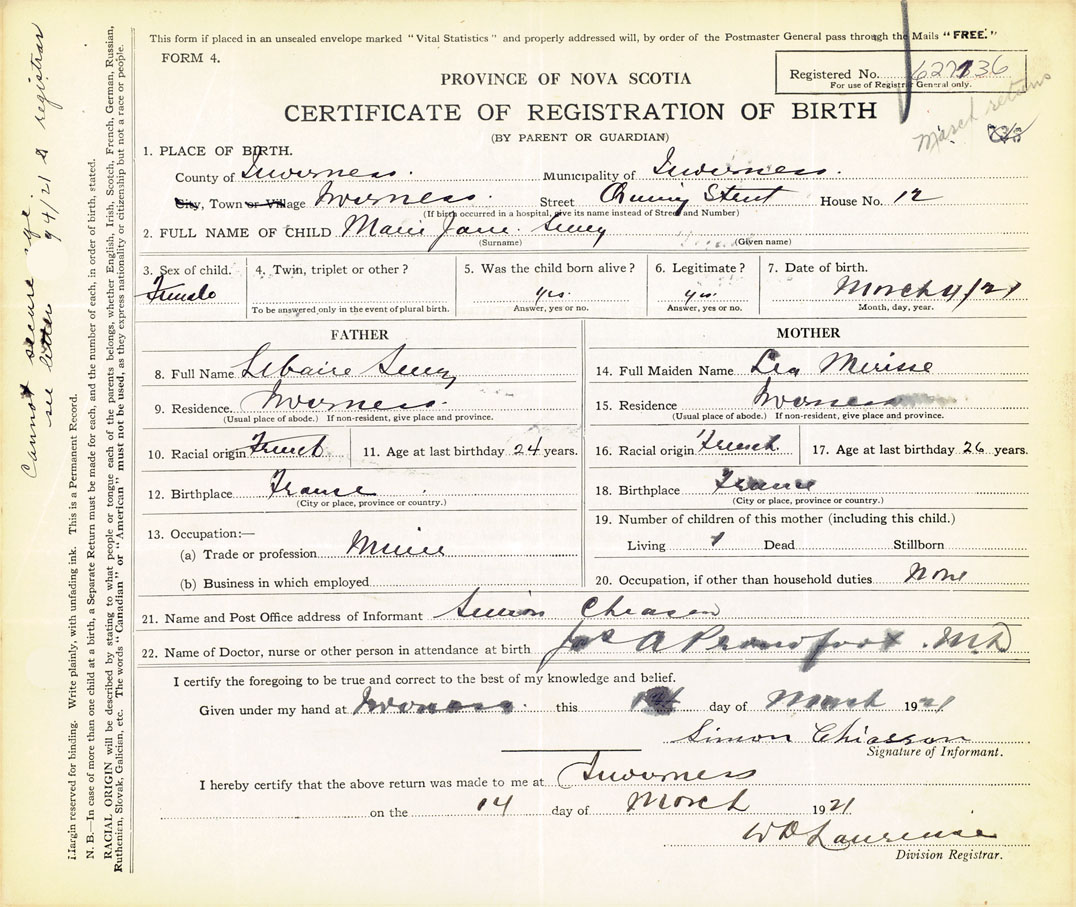 This form if placed in an unsealed envelope marked "Vital Statistics" and properly addressed will, by order of the Postmaster General pass through the Mails "FREE."
FORM 4.
Registered No.
For use of Registrar General only.
PROVINCE OF NOVA SCOTIA
CERTIFICATE OF REGISTRATION OF BIRTH
March returns
(BY PARENT OR GUARDIAN)
1. PLACE OF BIRTH.
County of Inverness. Municipality of Inverness.
City, Town or Village Inverness. Street House No. 12
(If birth occurred in a hospital, give its name instead of Street and Number)
2. FULL NAME OF CHILD Marie Jane
(Surname) (Given name)
3. Sex of child. 4. Twin, triplet or other? 5. Was the child born alive? 6. Legitimate? 7. Date of birth.
Female yes. yes. March 4/21
To be answered only in the event of plural birth. Answer, yes or no. Answer, yes or no. Month, day, year.
FATHER
8. Full Name
9. Residence. Inverness.
(Usual place of abode.) If non-resident, give place and province.
10. Racial origin French 11. Age at last birthday 24 years.
12. Birthplace France
(City or place, province or country.)
13. Occupation:—
(a) Trade or profession Miner
(b) Business in which employed
MOTHER
14. Full Maiden Name Lea
15. Residence Inverness
(Usual place of abode.) If non-resident, give place and province.
16. Racial origin French 17. Age at last birthday 26 years.
18. Birthplace France
(City or place, province or country.)
19. Number of children of this mother (including this child.)
Living 1 Dead Stillborn
20. Occupation, if other than household duties None
21. Name and Post Office address of Informant Simon Chiasson
22. Name of Doctor, nurse or other person in attendance at birth Jas A Proudfoot. M.D.
I certify the foregoing to be true and correct to the best of my knowledge and belief.
Given under my hand at Inverness. this day of March 1921
Simon Chiasson
Signature of Informant.
I hereby certify that the above return was made to me at Inverness
on the 14 day of March 1921
W D Lawrence
Division Registrar.
Cannot secure age.
see letter 9/4/21 registrar
Margin reserved for binding. Write plainly, with unfading ink. This is a Permanent Record.
N. B.—In case of more than one child at a birth, a Separate Return must be made for each, and the number of each, in order of birth, stated.
RACIAL ORIGIN will be described by stating to what people or tongue each of the parents belongs, whether English, Irish, Scotch, French, German, Russian,
Ruthenien, Slovak, Galician, etc. The words "Canadian" or "American" must not be used, as they express nationality or citizenship but not a race or people.